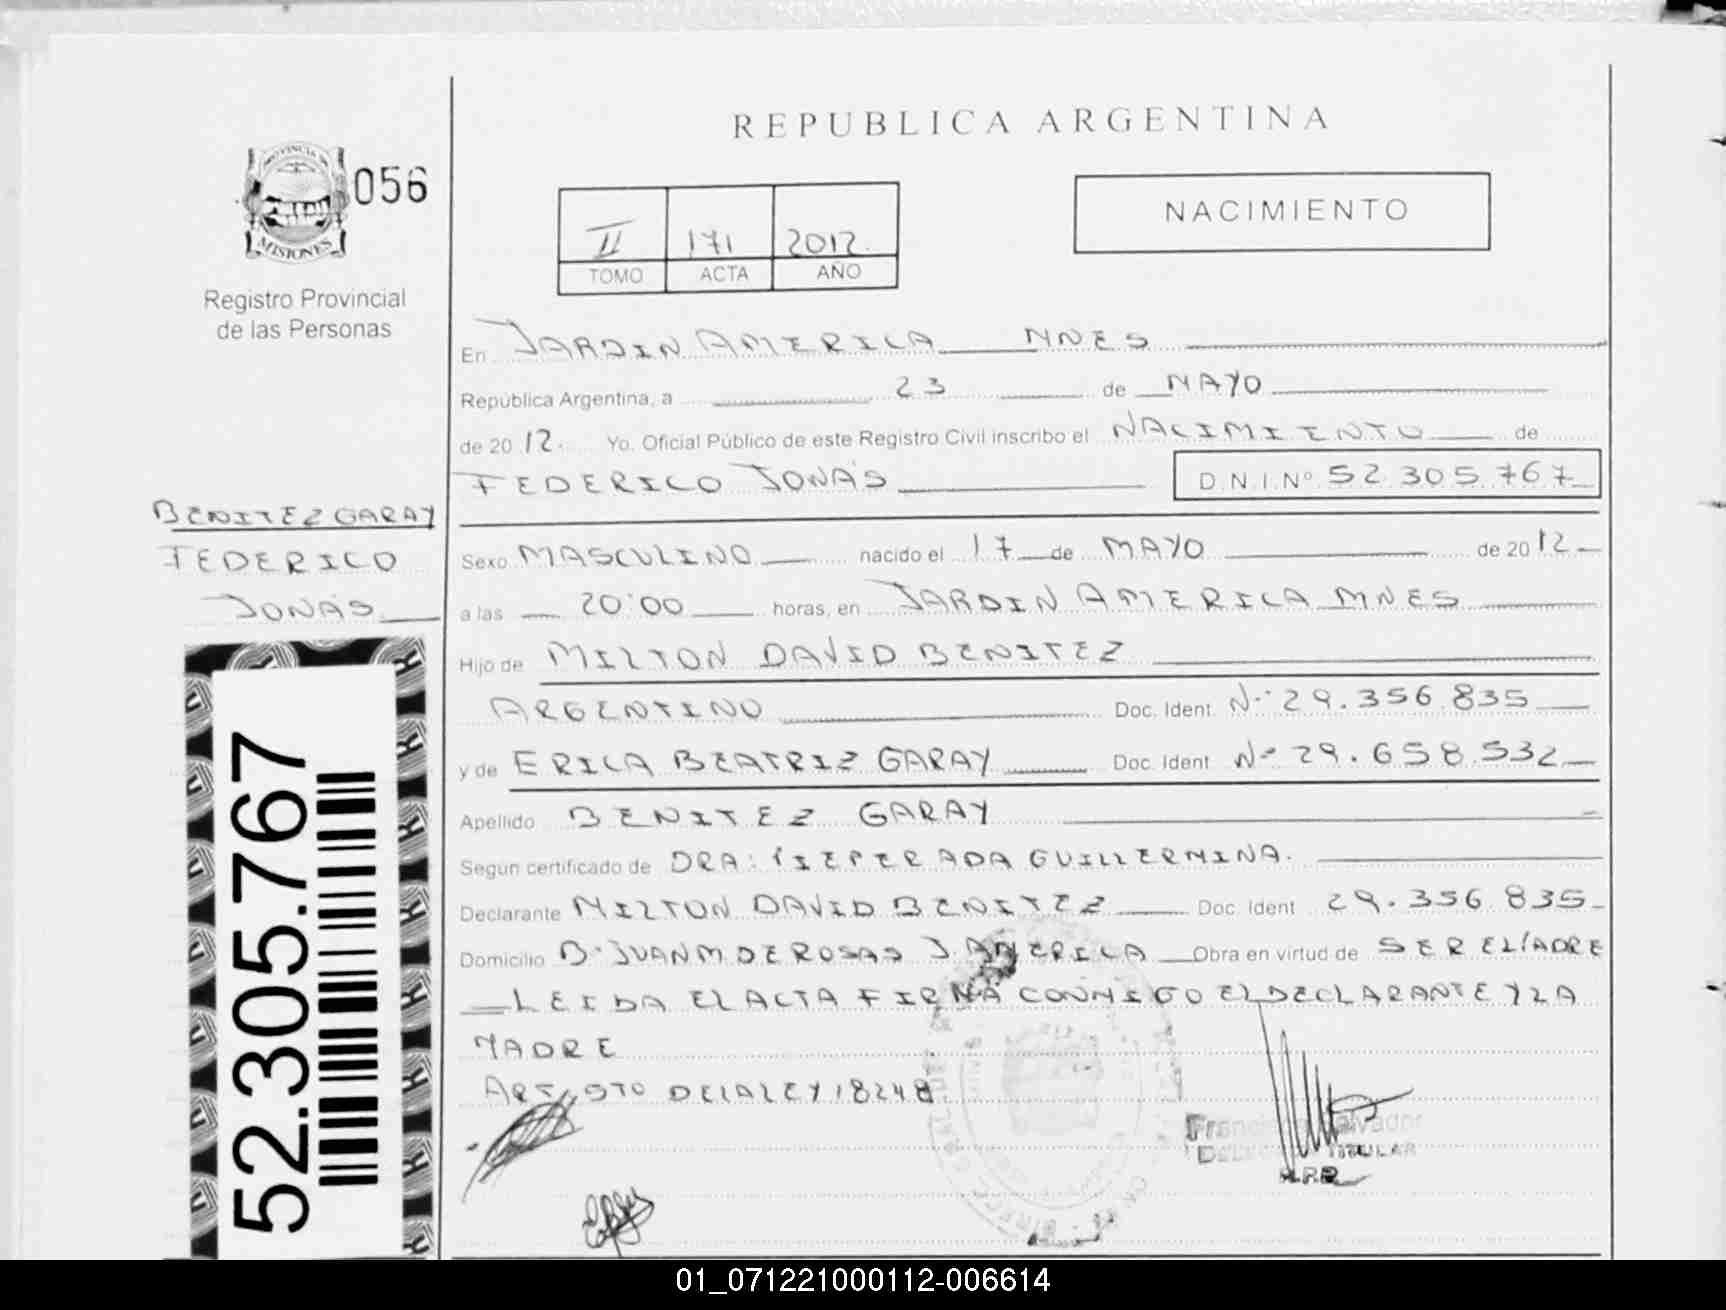 REPUBLICA ARGENTINA
PROVINCIA DE
MISIONES
056
Registro Provincial
de las Personas
II 171 2012
TOMO ACTA AÑO
NACIMIENTO
En JARDIN AMERICA MNES
República Argentina, a 23 de MAYO
de 2012. Yo. Oficial Público de este Registro Civil inscribo el NACIMIENTO de
FEDERICO JONÁS D.N.I.Nº 52 305.767
BENITEZ GARAY
FEDERICO
JONÁS
52.305.767
Sexo MASCULINO nacido el 17 de MAYO de 2012
a las 20:00 horas, en JARDIN AMERICA MNES
Hijo de MILTON DAVID BENITEZ
ARGENTINO Doc. Ident. Nº 29.356 835
y de ERICA BEATRIZ GARAY Doc. Ident. Nº 29.658.532
Apellido BENITEZ GARAY
Según certificado de DRA: GUILLERMINA.
Declarante MILTON DAVID BENITEZ Doc. Ident 29.356 835
Domicilio Bº JUAN M DE ROSAS J. AMERICA Obra en virtud de SER EL PADRE
LEIDA EL ACTA FIRMA CONMIGO EL DECLARANTE Y LA
MADRE
ART 5TO DE LA LEY 18248
Salvador
TITULAR
01_071221000112-006614